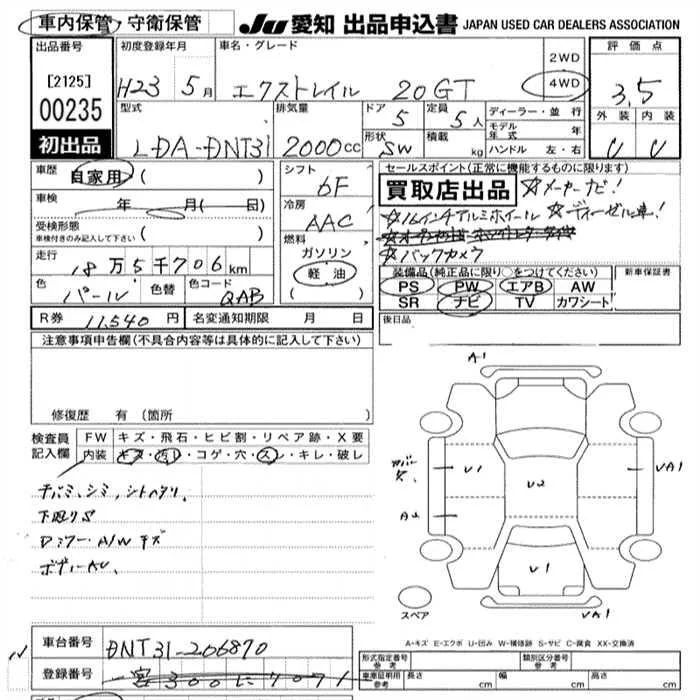 車内保管・守衛保管 JU愛知 出品申込書 JAPAN USED CAR DEALERS ASSOCIATION
出品番号 初度登録年月 車名・グレード 2WD 評価点
[2125] H23 5月 エクストレイル 20GT 4WD 3.5
00235 型式 排気量 ドア 定員 ディーラー・並行 外装 内装
初出品 LDA-DNT31 2000cc 5 5人 モデル年式 年
形状 SW 積載 kg ハンドル 左・右
車歴 自家用 ( ) シフト 6F セールスポイント(正常に機能するものに限ります)
車検 年 月( 日) 冷房 AAC 買取店出品 ☆メーカーナビ!
受検形態 ( ) ☆16インチアルミホイール ☆ディーゼル車!
車検付きのみ記入して下さい 燃料
走行 18万5千706km ガソリン ☆バックカメラ
色 パール 色替 色コード QAB 軽油 ( )
装備品(純正品に限り○をつけてください) 新車保証書
PS PW エアB AW
SR ナビ TV カワシート
R券 11,540円 名変通知期限 月 日 後日品
注意事項申告欄(不具合内容等は具体的に記入して下さい)
修復歴 有(箇所 )
検査員記入欄 FW キズ・飛石・ヒビ割・リペア跡・X要
内装 キズ・汚レ・コゲ・穴・スレ・キレ・破レ
下回りS
A/W キズ
A1
U1 U2 UA1
A2
U1
UA1
スペア
A-キズ E-エクボ U-凹み W-補修跡 S-サビ C-腐食 XX-交換済
車台番号 DNT31-206870
登録番号
形式指定番号 参考 類別区分番号 参考
車庫証明用 参考 長さ cm 幅 cm 高さ cm